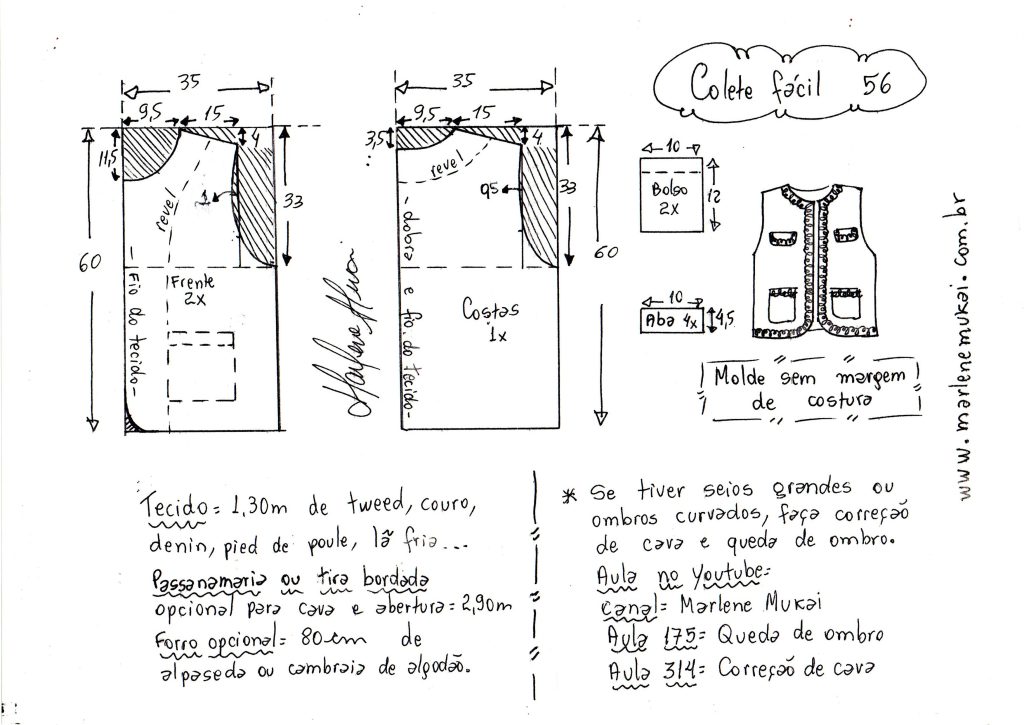 Colete fácil 56
35
9,5 15
11,5
4
revel
1
33
60
Frente
2x
Fio do tecido
35
9,5 15
3,5
4
revel
95
33
60
dobra e fio do tecido
Costas
1x
10
Bolso
2x
12
10
Aba 4x
4,5
Molde sem margem
de costura
www.marlenemukai.com.br
Tecido = 1,30m de tweed, couro,
denin, pied de poule, lã fria...
Passanamaria ou tira bordada
opcional para cava e abertura = 2,90m
Forro opcional = 80cm de
alpaseda ou cambraia de algodão.
* Se tiver seios grandes ou
ombros curvados, faça correção
de cava e queda de ombro.
Aula no Youtube=
Canal = Marlene Mukai
Aula 175 = Queda de ombro
Aula 314 = Correção de cava